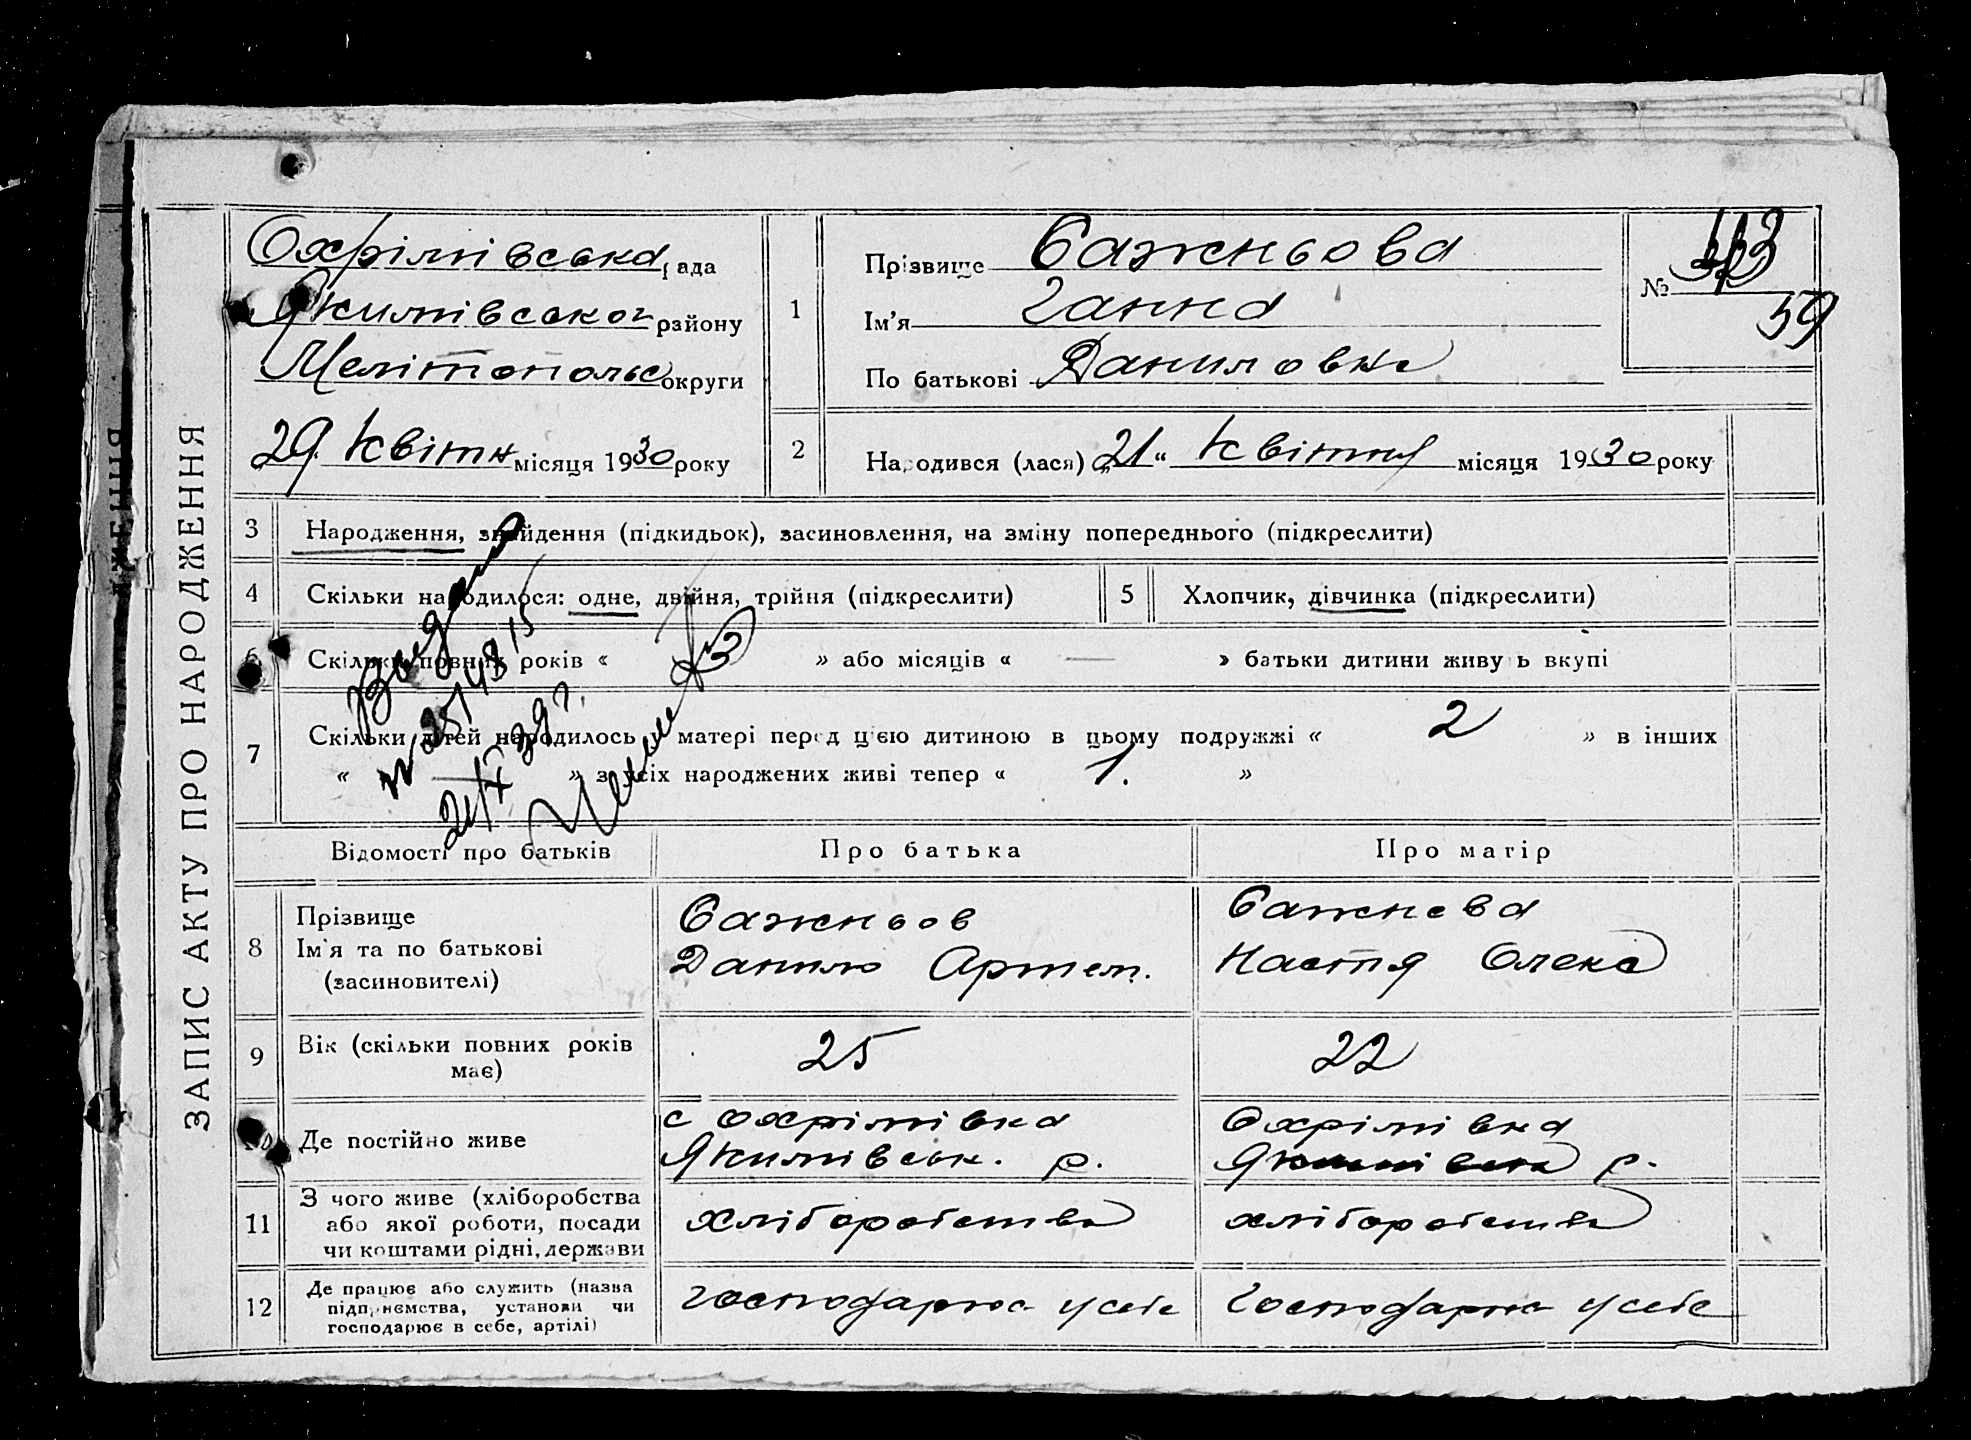 ЗАПИС АКТУ ПРО НАРОДЖЕННЯ
Охрімівська рада
Якимівськог району
Мелітопольс округи
29 квітн місяця 1930 року
1
Прізвище Сажньова
Ім'я Ганна
По батькові Даниловна
№ 43
59
2
Народився (лася) „21“ квітня місяця 1930 року
3 Народження, знайдення (підкидьок), засиновлення, на зміну попереднього (підкреслити)
4 Скільки народилося: одне, двійня, трійня (підкреслити)
5 Хлопчик, дівчинка (підкреслити)
6 Скільки повних років « » або місяців « — » батьки дитини живуть вкупі
7 Скільки дітей народилось у матері перед цією дитиною в цьому подружжі « 2 » в інших
« — » з усіх народжених живі тепер « 1. »
Відомості про батьків
Про батька
Про матір
8
Прізвище
Ім'я та по батькові
(засиновителі)
Сажньов
Данило Артем.
Сажнева
Настя Олекс
9
Вік (скільки повних років
має)
25
22
10 Де постійно живе
с Охрімівка
Якимівськ. р.
Охрімівка
р.
11
З чого живе (хліборобства
або якої роботи, посади
чи коштами рідні, держави
хліборобства
хліборобства
12
Де працює або служить (назва
підприємства, установи чи
господарює в себе, артілі)
господарює у себе
господарює у себе